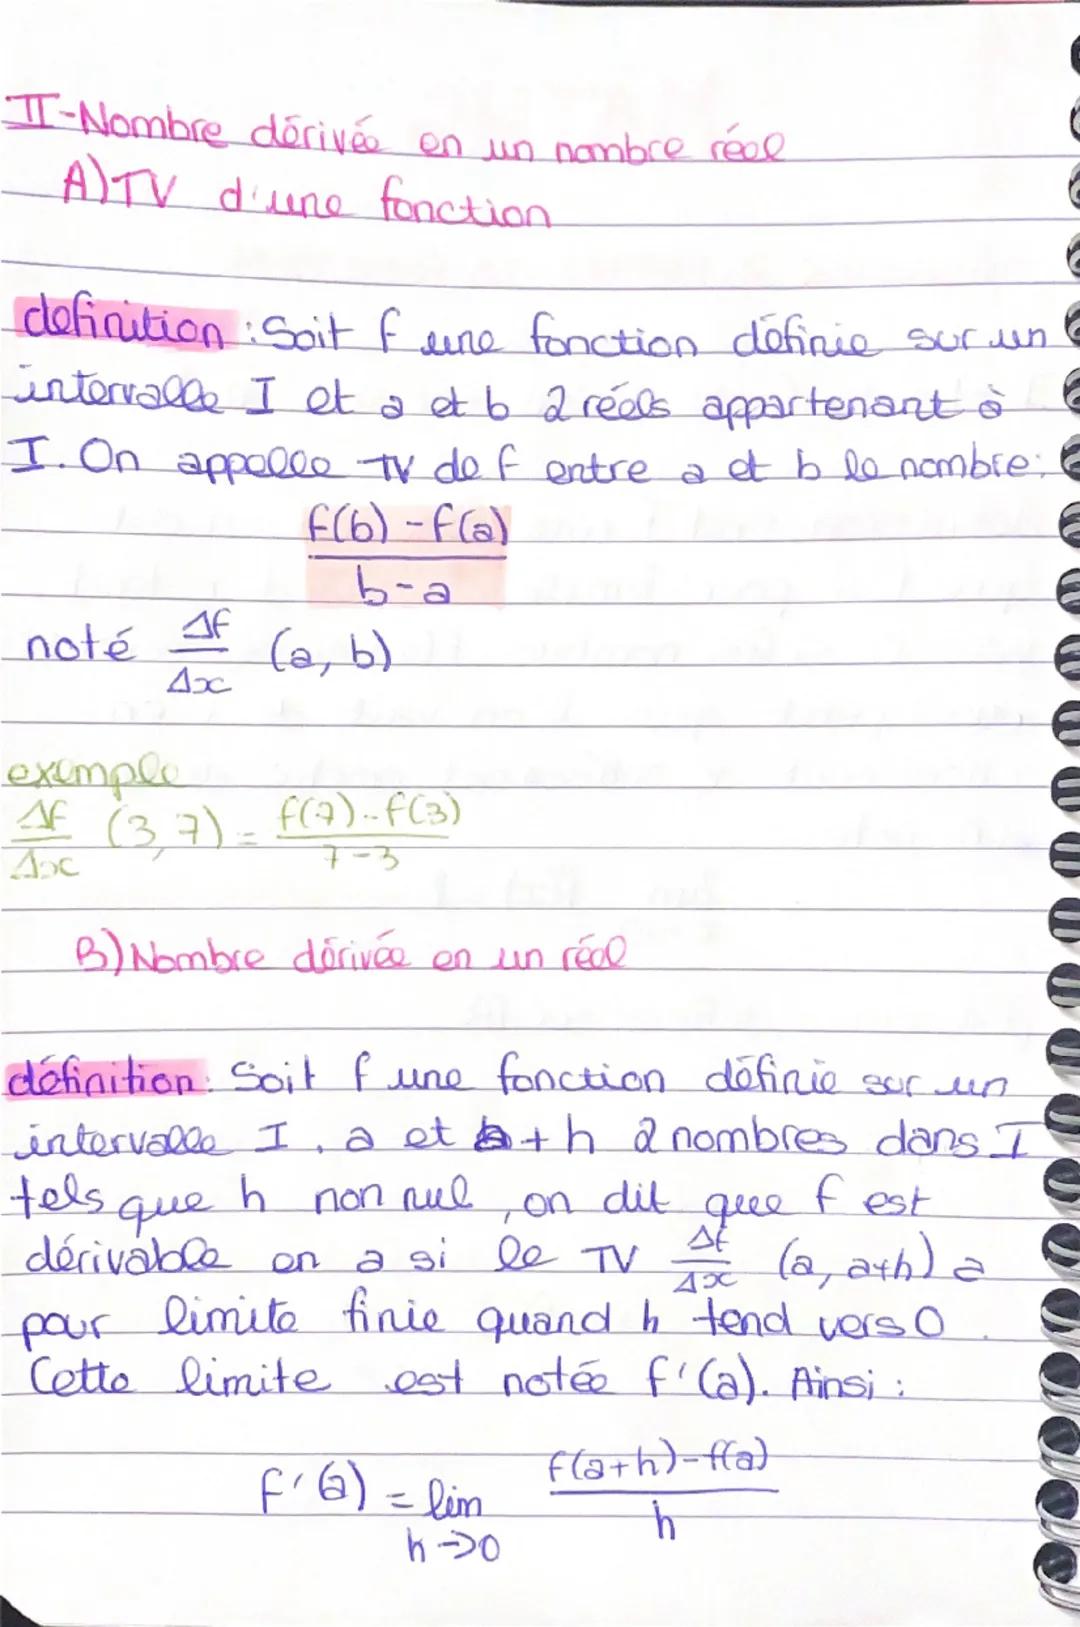 II-Nombre dérivée en un nombre réel
A) TV d'une fonction
definition : Soit f une fonction définie sur un
intervalle I et a et b 2 réels appartenant à
I. On appelle TV de f entre a et b le nombre :
f(b) - f(a)
b-a
noté Δf (a, b)
Δx
exemple
Δf (3, 7) = f(7) - f(3)
Δx 7-3
B) Nombre dérivée en un réel
définition : Soit f une fonction définie sur un
intervalle I, a et a+h 2 nombres dans I
tels que h non nul, on dit que f est
dérivable en a si le TV Δf (a, a+h) a
Δx
pour limite finie quand h tend vers 0.
Cette limite est notée f'(a). Ainsi :
f(a+h)-f(a)
f'(a) = lim
h
h→0